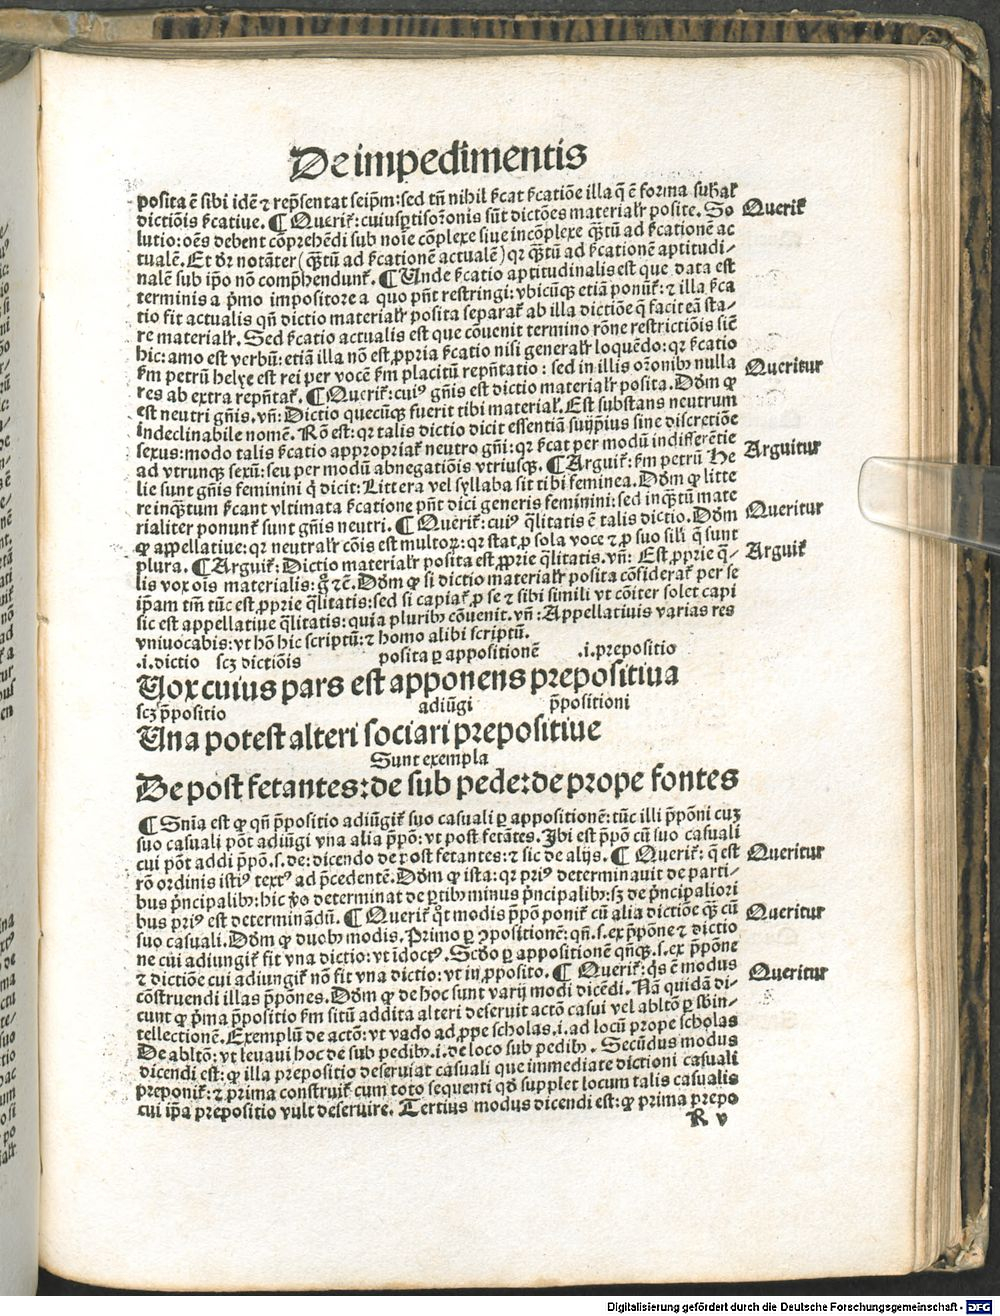 De impedimentis
posita ē sibi idē ⁊ rep̄sentat seip̄m: sed tn̄ nihil ſcat ſcatiōe illa q̄ ē forma subal
dictiōis ſcatiue. ¶ Querit᷑: cuius ptis or̄onis sūt dictōes materialr̄ posite. So
Querit᷑
lutio: oēs debent cōprehēdi sub noīe cōplexe siue incōplexe qͣtū ad ſcationē ac
tualē. Et dr̄ notāter (qͣtū ad ſcationē actualē) qꝛ qͣtū ad ſcationē aptitudi-
nalē sub ip̄o nō comp̄hendunt᷑. ¶ Unde ſcatio aptitudinalis est que data est
terminis a p̄mo impositore a quo pn̄t restringi: vbicūqꝫ etiā ponūt᷑: ⁊ illa ſca
tio fit actualis qn̄ dictio materialr̄ posita separat᷑ ab illa dictiōe q̄ facit eā sta-
re materialr̄. Sed ſcatio actualis est que cōuenit termino rōne restrictiōis siē
hic: amo est verbū: etiā illa nō est ꝓpria ſcatio nisi generalr̄ loquēdo: qꝛ ſcatio
ſm petrū helye est rei per vocē ſm placitū repn̄tatio: sed in illis or̄onibꝰ nulla
res ab extra repn̄tat᷑. ¶ Querit᷑: cuiꝰ gn̄is est dictio materialr̄ posita. Dōm ꝙ
Queritur
est neutri gn̄is. vn̄: Dictio quecūqꝫ fuerit tibi material᷑. Est substans neutrum
Indeclinabile nomē. Rō est: qꝛ talis dictio dicit essentiā suijpius sine discretiōe
sexus: modo talis ſcatio appropriat᷑ neutro gn̄i: qꝛ ſcat per modū indifferētie
ad vtrunqꝫ sexū: seu per modū abnegatiōis vtriusqꝫ. ¶ Arguit᷑: ſm petrū He
Arguitur
lie sunt gn̄is feminini q̄ dicit: Littera vel syllaba sit tibi feminea. Dōm ꝙ litte
re inqͣtum ſcant vltimata ſcatione pn̄t dici generis feminini: sed inqͣtū mate
rialiter ponunt᷑ sunt gn̄is neutri. ¶ Querit᷑: cuiꝰ q̄litatis ē talis dictio. Dōm
Queritur
ꝙ appellatiue: qꝛ neutralr̄ cōis est multoꝝ: qꝛ stat ꝓ sola voce ⁊ ꝓ suo sili q̄ sunt
plura. ¶ Arguit᷑: Dictio materialr̄ posita est ꝓprie q̄litatis. vn̄: Est ꝓprie q̄-
Arguit᷑
lis vox ois materialis: g̊ ⁊c̄. Dōm ꝙ si dictio materialr̄ posita cōsiderat᷑ per se
ip̄am tm̄ tūc est ꝓprie q̄litatis: sed si capiat᷑ ꝓ se ⁊ sibi simili vt cōiter solet capi
sic est appellatiue q̄litatis: quia pluribꝰ cōuenit. vn̄: Appellatiuis varias res
vniuocabis: vt hō hic scriptū: ⁊ homo alibi scriptū.
.i. dictio sc̄ꝫ dictiōis posita ꝑ appositionē .i. prepositio
Uox cuius pars est apponens prepositiua
sc̄ꝫ p̄positio adiūgi p̄positioni
Una potest alteri sociari prepositiue
Sunt exempla
De post fetantes: de sub pede: de prope fontes
¶ Sn̄ia est ꝙ qn̄ p̄positio adiūgit᷑ suo casuali ꝑ appositionē: tūc illi p̄pōni cuꝫ
suo casuali pōt adiūgi vna alia p̄pō: vt post fetātes. Ibi est p̄pō cū suo casuali
cui pōt addi p̄pō .s. de: dicendo de post fetantes: ⁊ sic de alijs. ¶ Querit᷑: q̄ est
Queritur
rō ordinis istiꝰ textꝰ ad p̄cedentē. Dōm ꝙ ista: qꝛ priꝰ determinauit de parti-
bus p̄ncipalibꝰ: hic v̊o determinat de ꝑtibꝰ minus p̄ncipalibꝰ: sꝫ de p̄ncipaliori
bus priꝰ est determinādū. ¶ Querit᷑ quot modis p̄pō ponit᷑ cū alia dictiōe qͣꝫ cū
Queritur
suo casuali. Dōm ꝙ duobꝰ modis. Primo ꝑ ꝯpositionē: qn̄ .s. ex p̄pōne ⁊ dictio
ne cui adiungit᷑ fit vna dictio: vt īdoctꝰ. Scd̊o ꝑ appositionē qn̄qꝫ .s. ex p̄pōne
⁊ dictiōe cui adiungit᷑ nō fit vna dictio: vt in ꝓposito. ¶ Querit᷑: q̄s ē modus
Queritur
cōstruendi illas p̄pōnes. Dōm ꝙ de hoc sunt varij modi dicēdi. Nā quidā di-
cunt ꝙ p̄ma p̄positio ſm situ addita alteri deseruit actō casui vel abltō ꝑ sbin-
tellectionē. Exemplū de actō: vt vado ad ꝓpe scholas .i. ad locū prope scholas
De abltō: vt leuaui hoc de sub pedibꝰ .i. de loco sub pedibꝰ. Secūdus modus
dicendi est: ꝙ illa prepositio deseruiat casuali que immediate dictioni casuali
preponit᷑: ⁊ prima construit᷑ cum toto sequenti qd̄ supplet locum talis casualis
cui ip̄a prepositio vult deseruire. Tertius modus dicendi est: ꝙ prima prepo
R v
Digitalisierung gefördert durch die Deutsche Forschungsgemeinschaft - DFG